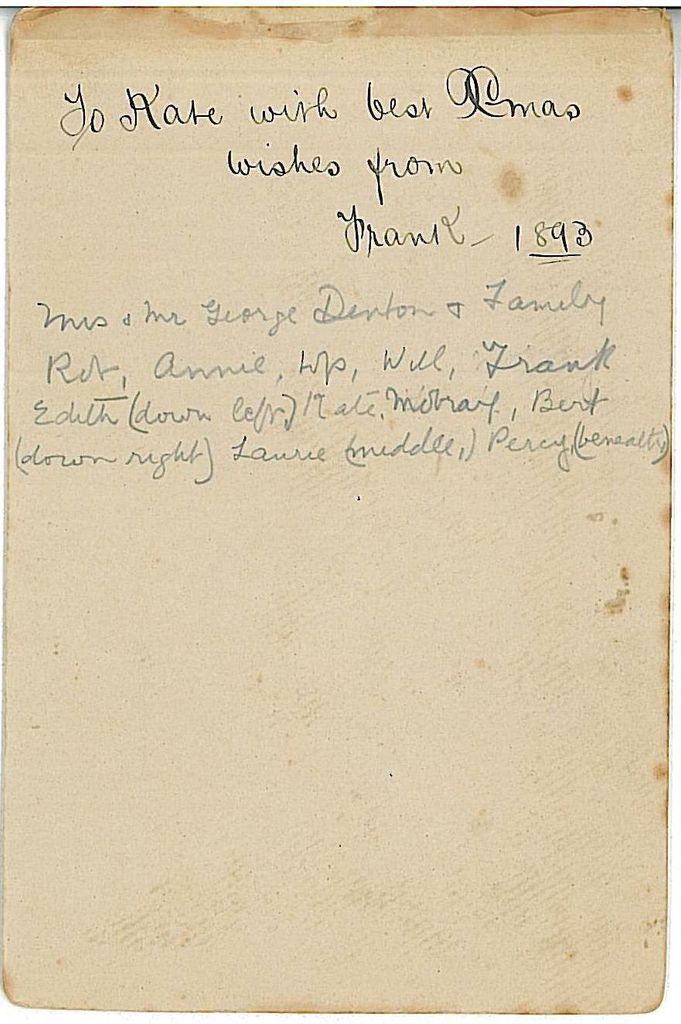 To Kate with best Xmas
wishes from
Frank - 1893
Mrs & Mr George Denton & Family
Annie, Will, Frank
Edith (down left) Kate, Bert
(down right) Laurie (middle,) Percy, (beneath)